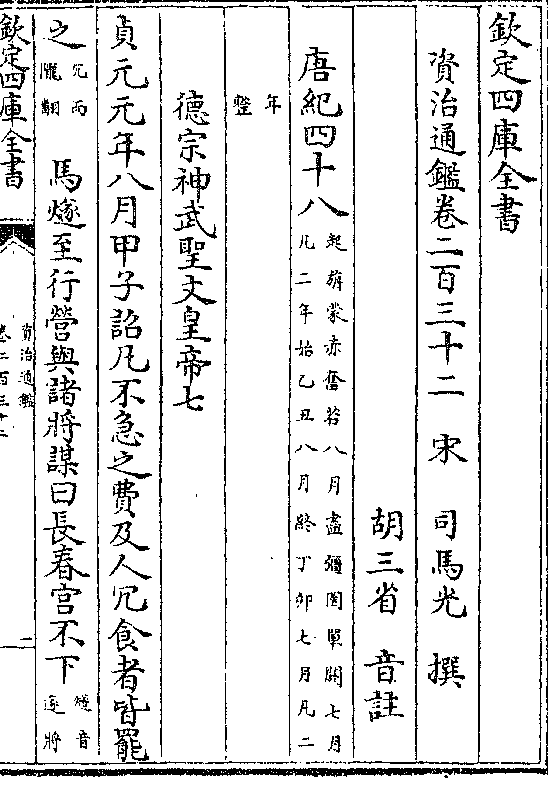 欽定四庫全書
資治通鑑卷二百三十二　宋　司馬光　撰
胡三省　音註
唐紀四十八起旃蒙赤奮若八月盡彊圉單閼七月凡二年始乙丑八月終丁卯七月凡二
年整
德宗神武聖文皇帝七
貞元元年八月甲子詔凡不急之費及人冗食者皆罷
之冗而隴翻　馬燧至行營與諸將謀曰長春宮不下燧音遂將
欽定四庫全書
資治通鑑
卷二百三十二